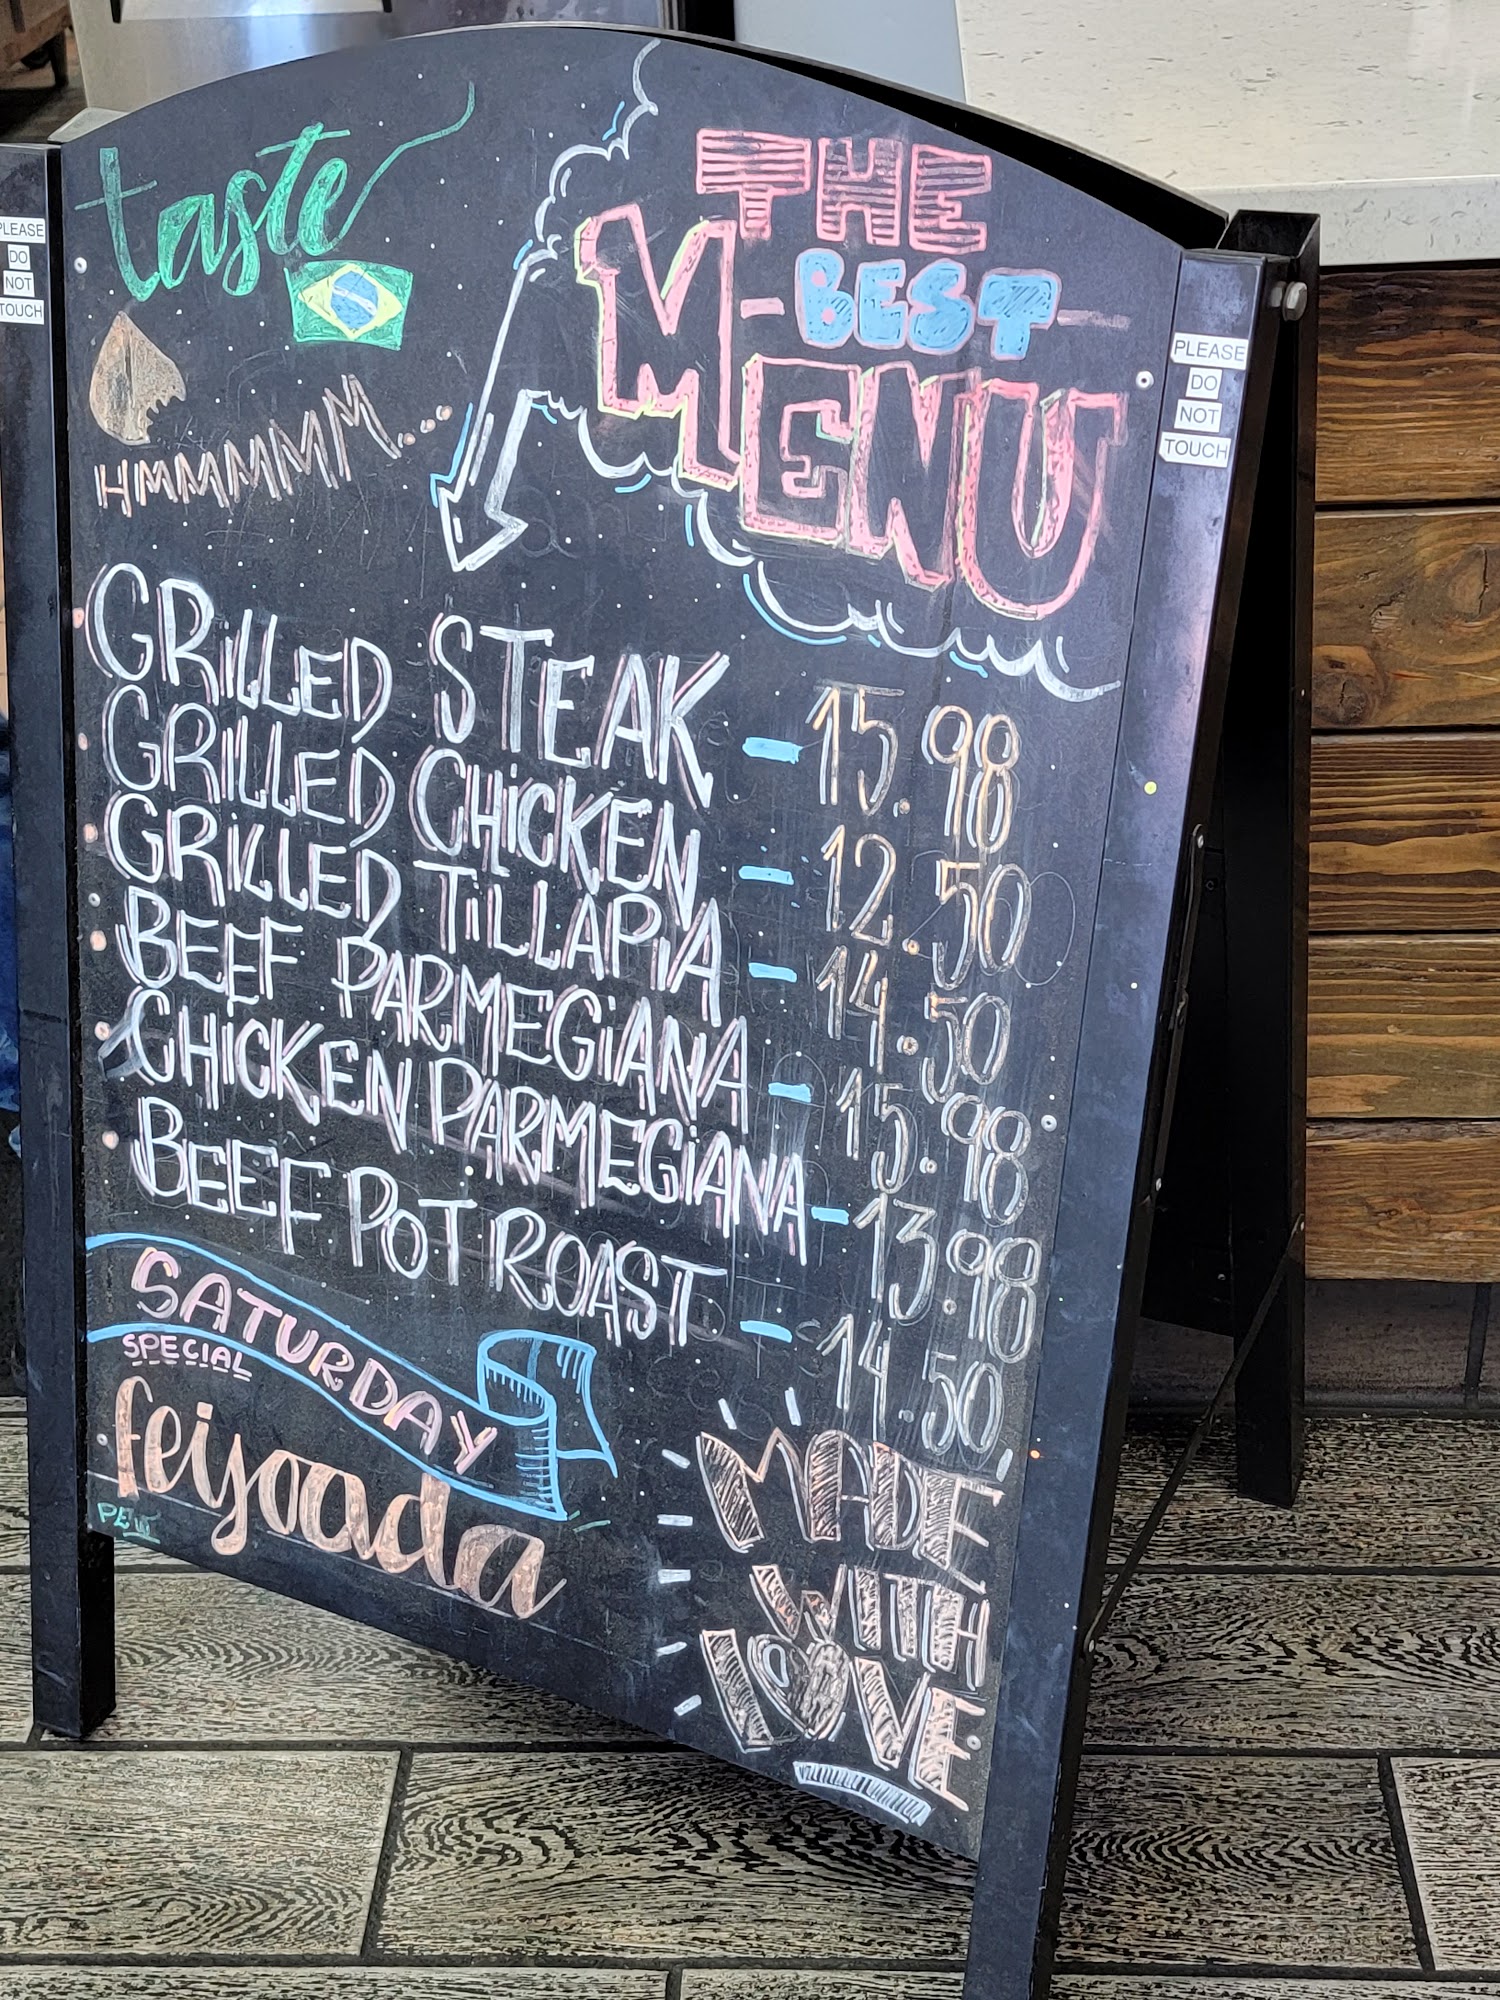 taste
HMMMMMM...
THE
BEST
MENU
GRILLED STEAK - 15.98
GRILLED CHICKEN - 12.50
GRILLED TILLAPIA - 14.50
BEEF PARMEGIANA - 15.98
CHICKEN PARMEGIANA - 13.98
BEEF POT ROAST - 14.50
SATURDAY
SPECIAL
feijoada
MADE
WITH
LOVE
PLEASE
DO
NOT
TOUCH
PLEASE
DO
NOT
TOUCH